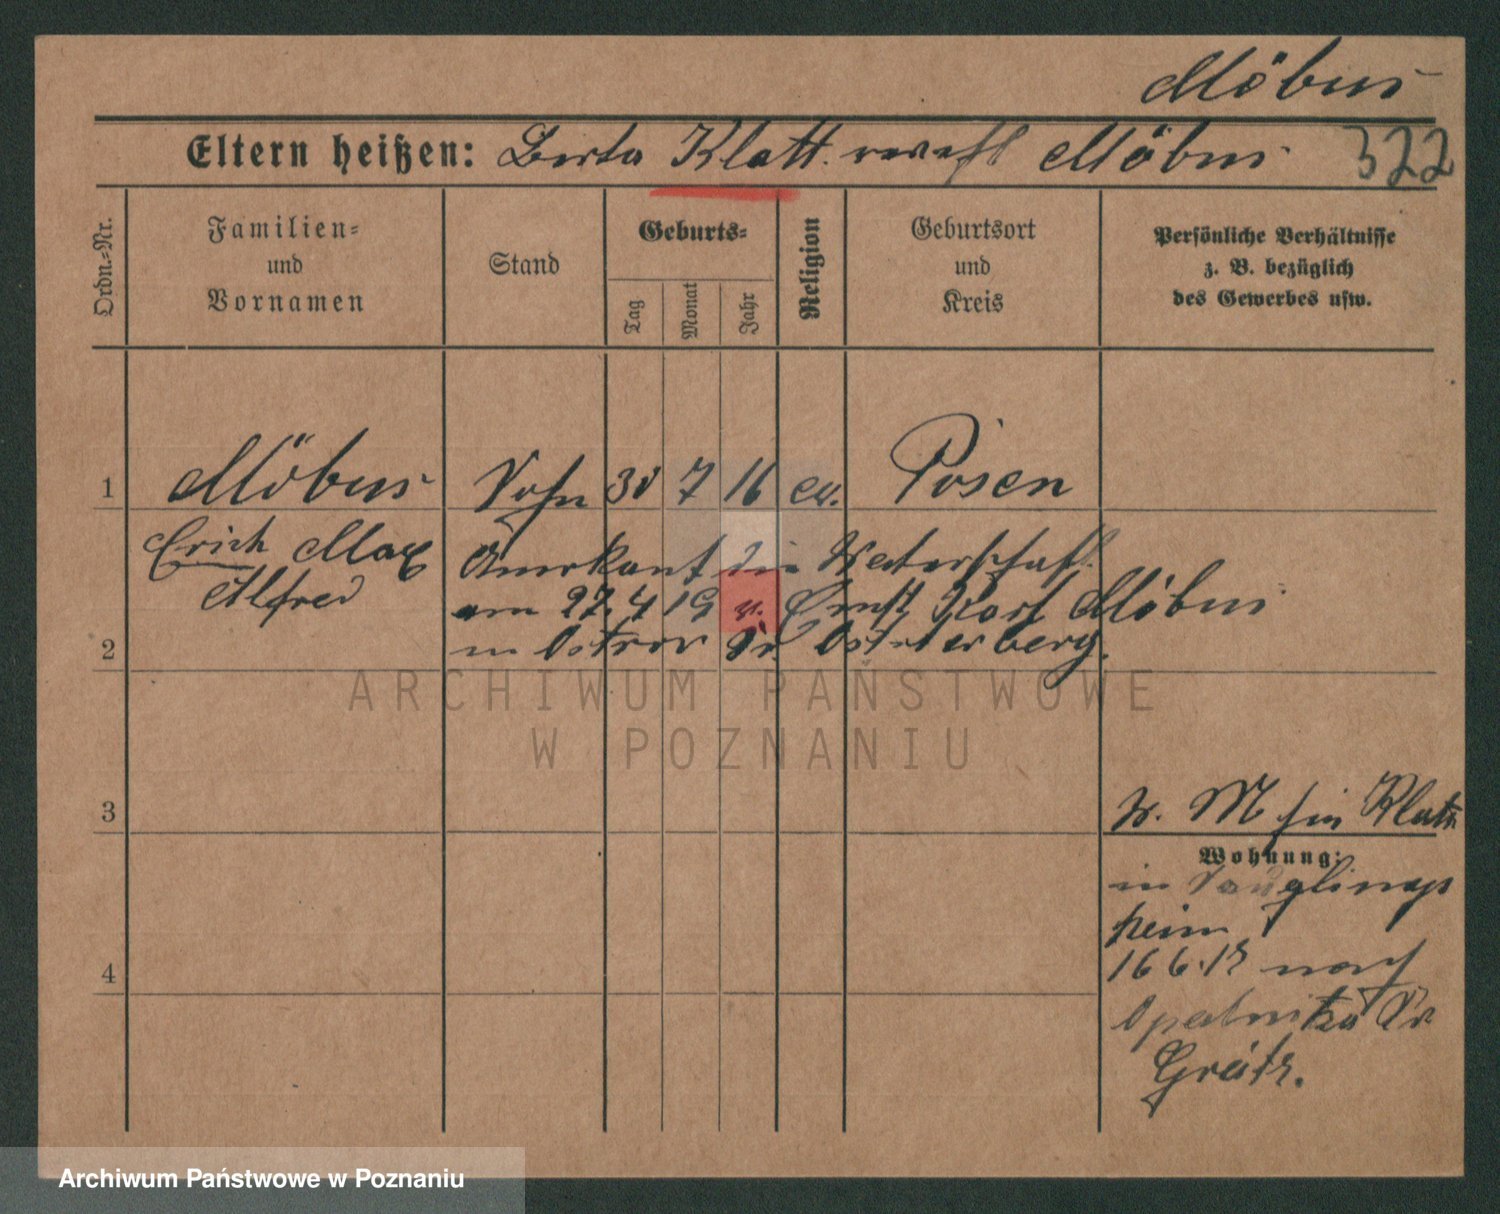 Möbus
Eltern heißen: Berta Klatt. verehl Möbus 322
Ordn.-Nr.
Familien-
und
Vornamen
Stand
Geburts-
Tag
Monat
Jahr
Religion
Geburtsort
und
Kreis
Persönliche Verhältnisse
z. B. bezüglich
des Gewerbes usw.
1 Möbus Sohn 30 7 16 ev. Posen
Erich Max
Alfred
Anerkant die Vaterschaft
am 27.4 19 v. Ernst Karl Möbus
2
in Ostrow Kr. Osterberg.
ARCHIWUM PAŃSTWOWE
W POZNANIU
3
b. M Klatt
Wohnung:
in Säuglings
heim
16 6.17 nach
4
Opalenitza Kr
Grätz.
Archiwum Państwowe w Poznaniu